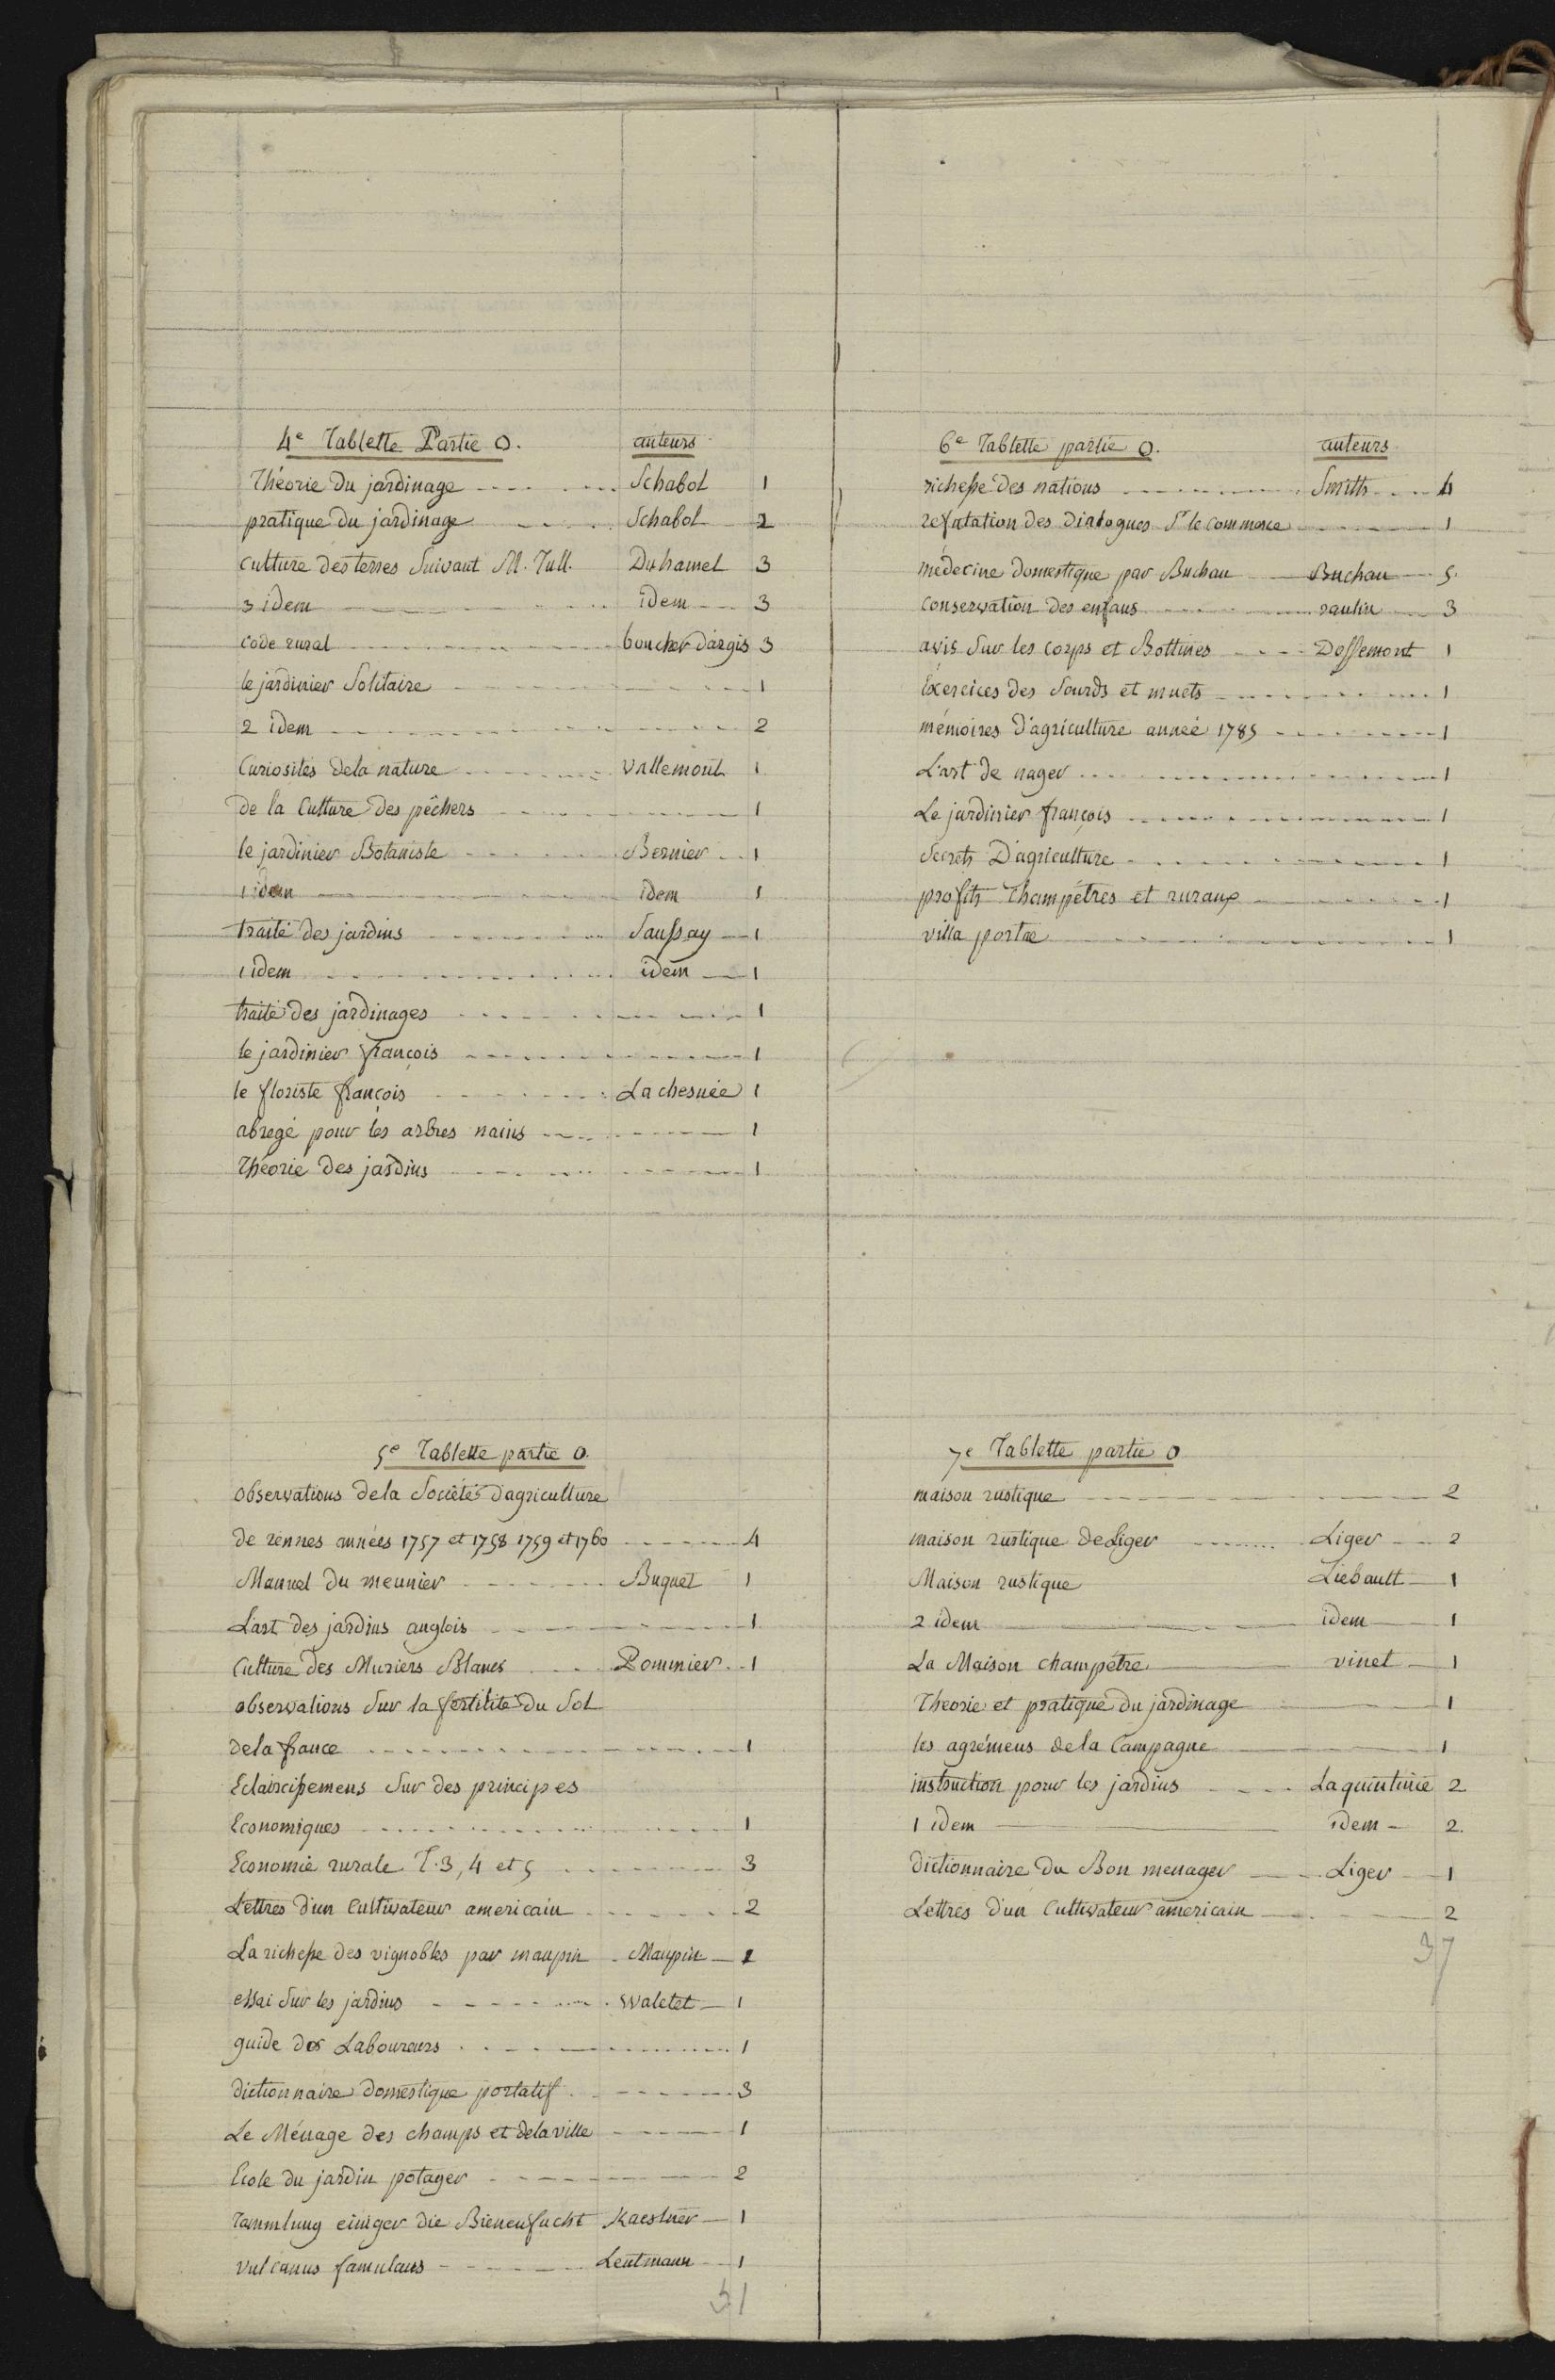 4e Tablette Partie O. auteurs
Théorie du jardinage Schabol 1
pratique du jardinage Schabol 2
Culture des terres Suivant M. Tull. Duhamel 3
3 idem idem 3
Code rural boucher d'argis 3
le jardinier Solitaire 1
2 idem 2
Curiosités de la nature Vallemont 1
de la Culture des pêchers 1
le jardinier Botaniste Bernier 1
1 idem idem 1
traité des jardins Saussay 1
1 idem idem 1
traité des jardinages 1
le jardinier françois 1
le floriste françois La chesnée 1
abregé pour les arbres nains 1
Théorie des jardins 1
5e Tablette partie O.
observations de la Société d'agriculture
de rennes années 1757 et 1758 1759 et 1760 4
Manuel du meunier Buquet 1
L'art des jardins anglois 1
Culture des Muriers Blancs Pommier 1
observations Sur la fertilité du Sol
de la france 1
Eclaircissemens Sur des principes
Economiques 1
Economie rurale T. 3, 4 et 5 3
Lettres d'un Cultivateur americain 2
La richesse des vignobles par maupin Maupin
essai Sur les jardins Waletet 1
guide des Laboureurs 1
dictionnaire domestique portatif 3
Le Ménage des champs et de la ville 1
Ecole du jardin potager 2
Sammlung einiger die Bienenfucht Kaestner 1
vulcanus famulans Leutmann 1
31
6e Tablette partie O. auteurs
richesse des nations Smith 4
refutation des dialogues Sr le commerce 1
médecine domestique par Buchan Buchan 5
Conservation des enfans raulin 3
avis Sur les corps et Bottines Doffemont 1
Exercices des Sourds et muets 1
mémoires d'agriculture année 1785 1
L'art de nager 1
Le jardinier françois 1
Secrets D'agriculture 1
profits Champêtres et ruraux 1
villa portæ 1
7e Tablette partie O
maison rustique 2
maison rustique de Liger Liger 2
Maison rustique Liebault 1
2 idem idem 1
La Maison champêtre vinet 1
Theorie et pratique du jardinage 1
les agrémens de la Campagne 1
instruction pour les jardins Laquintinie 2
1 idem idem 2.
dictionnaire du Bon menager Liger 1
Lettres d'un Cultivateur americain 2
37